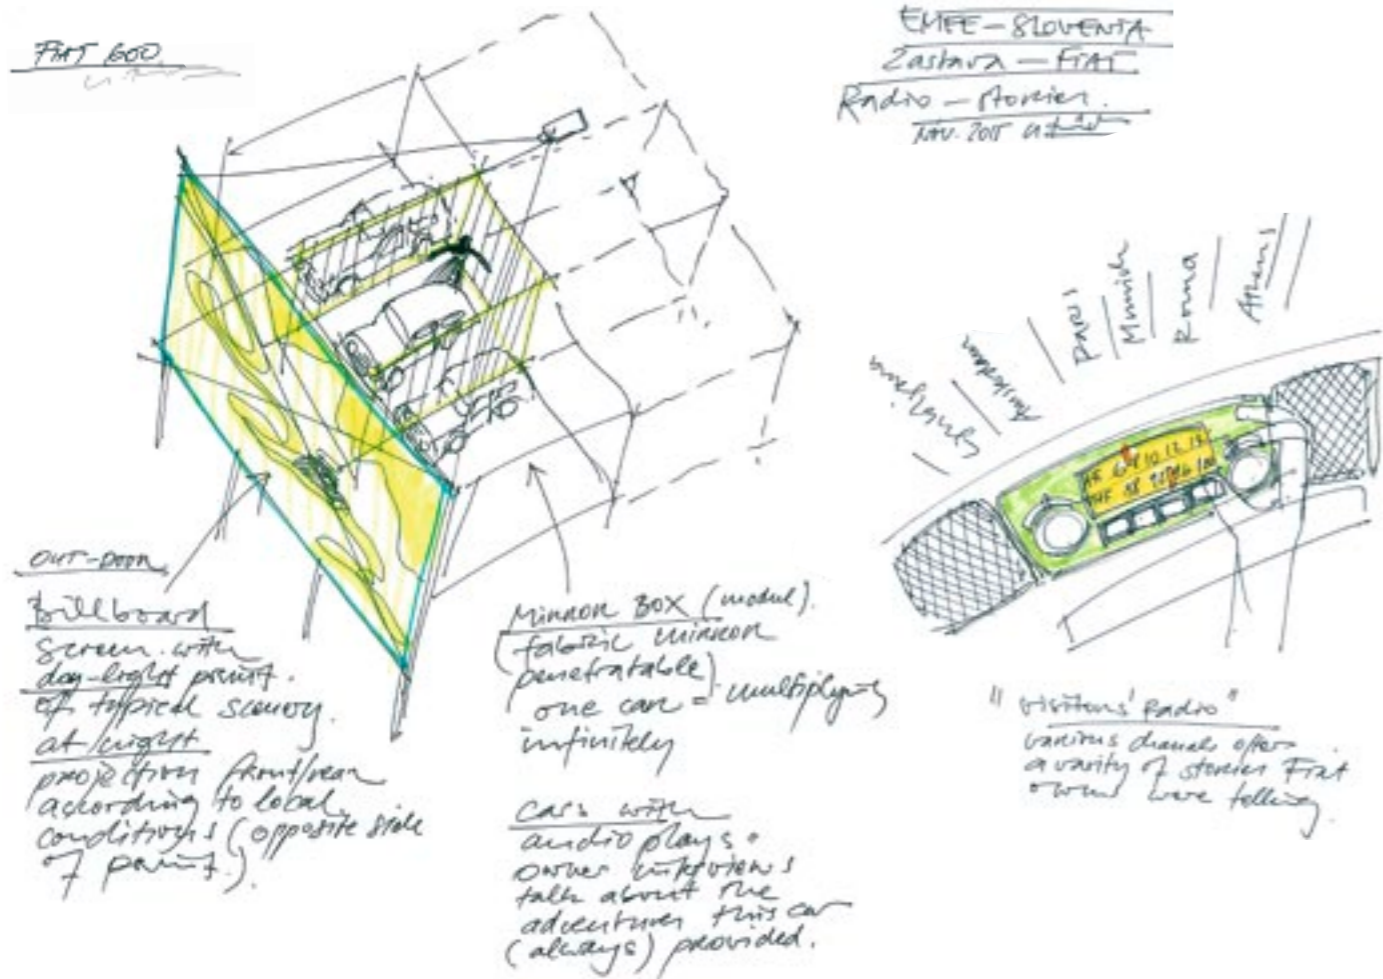 FIAT 600
EMEE – SLOVENIA
Zastava – FIAT
Radio – stories.
Nov. 2015
Ljubljana
Amsterdam
Paris
Munich
Roma
Athens
OUT-DOOR
Billboard
Screen with
day-light print.
of typical scenery.
at night
projection front/rear
according to local
conditions (opposite side
of print.).
MIRROR BOX (modul).
(fabric mirror
penetratable)
one car = multiplying
infinitely
cars with
audio plays.
owner interviews
talk about the
adventures this car
(always) provided.
"Visitors' Radio"
various channels offer
a varity of stories Fiat
owners were telling.